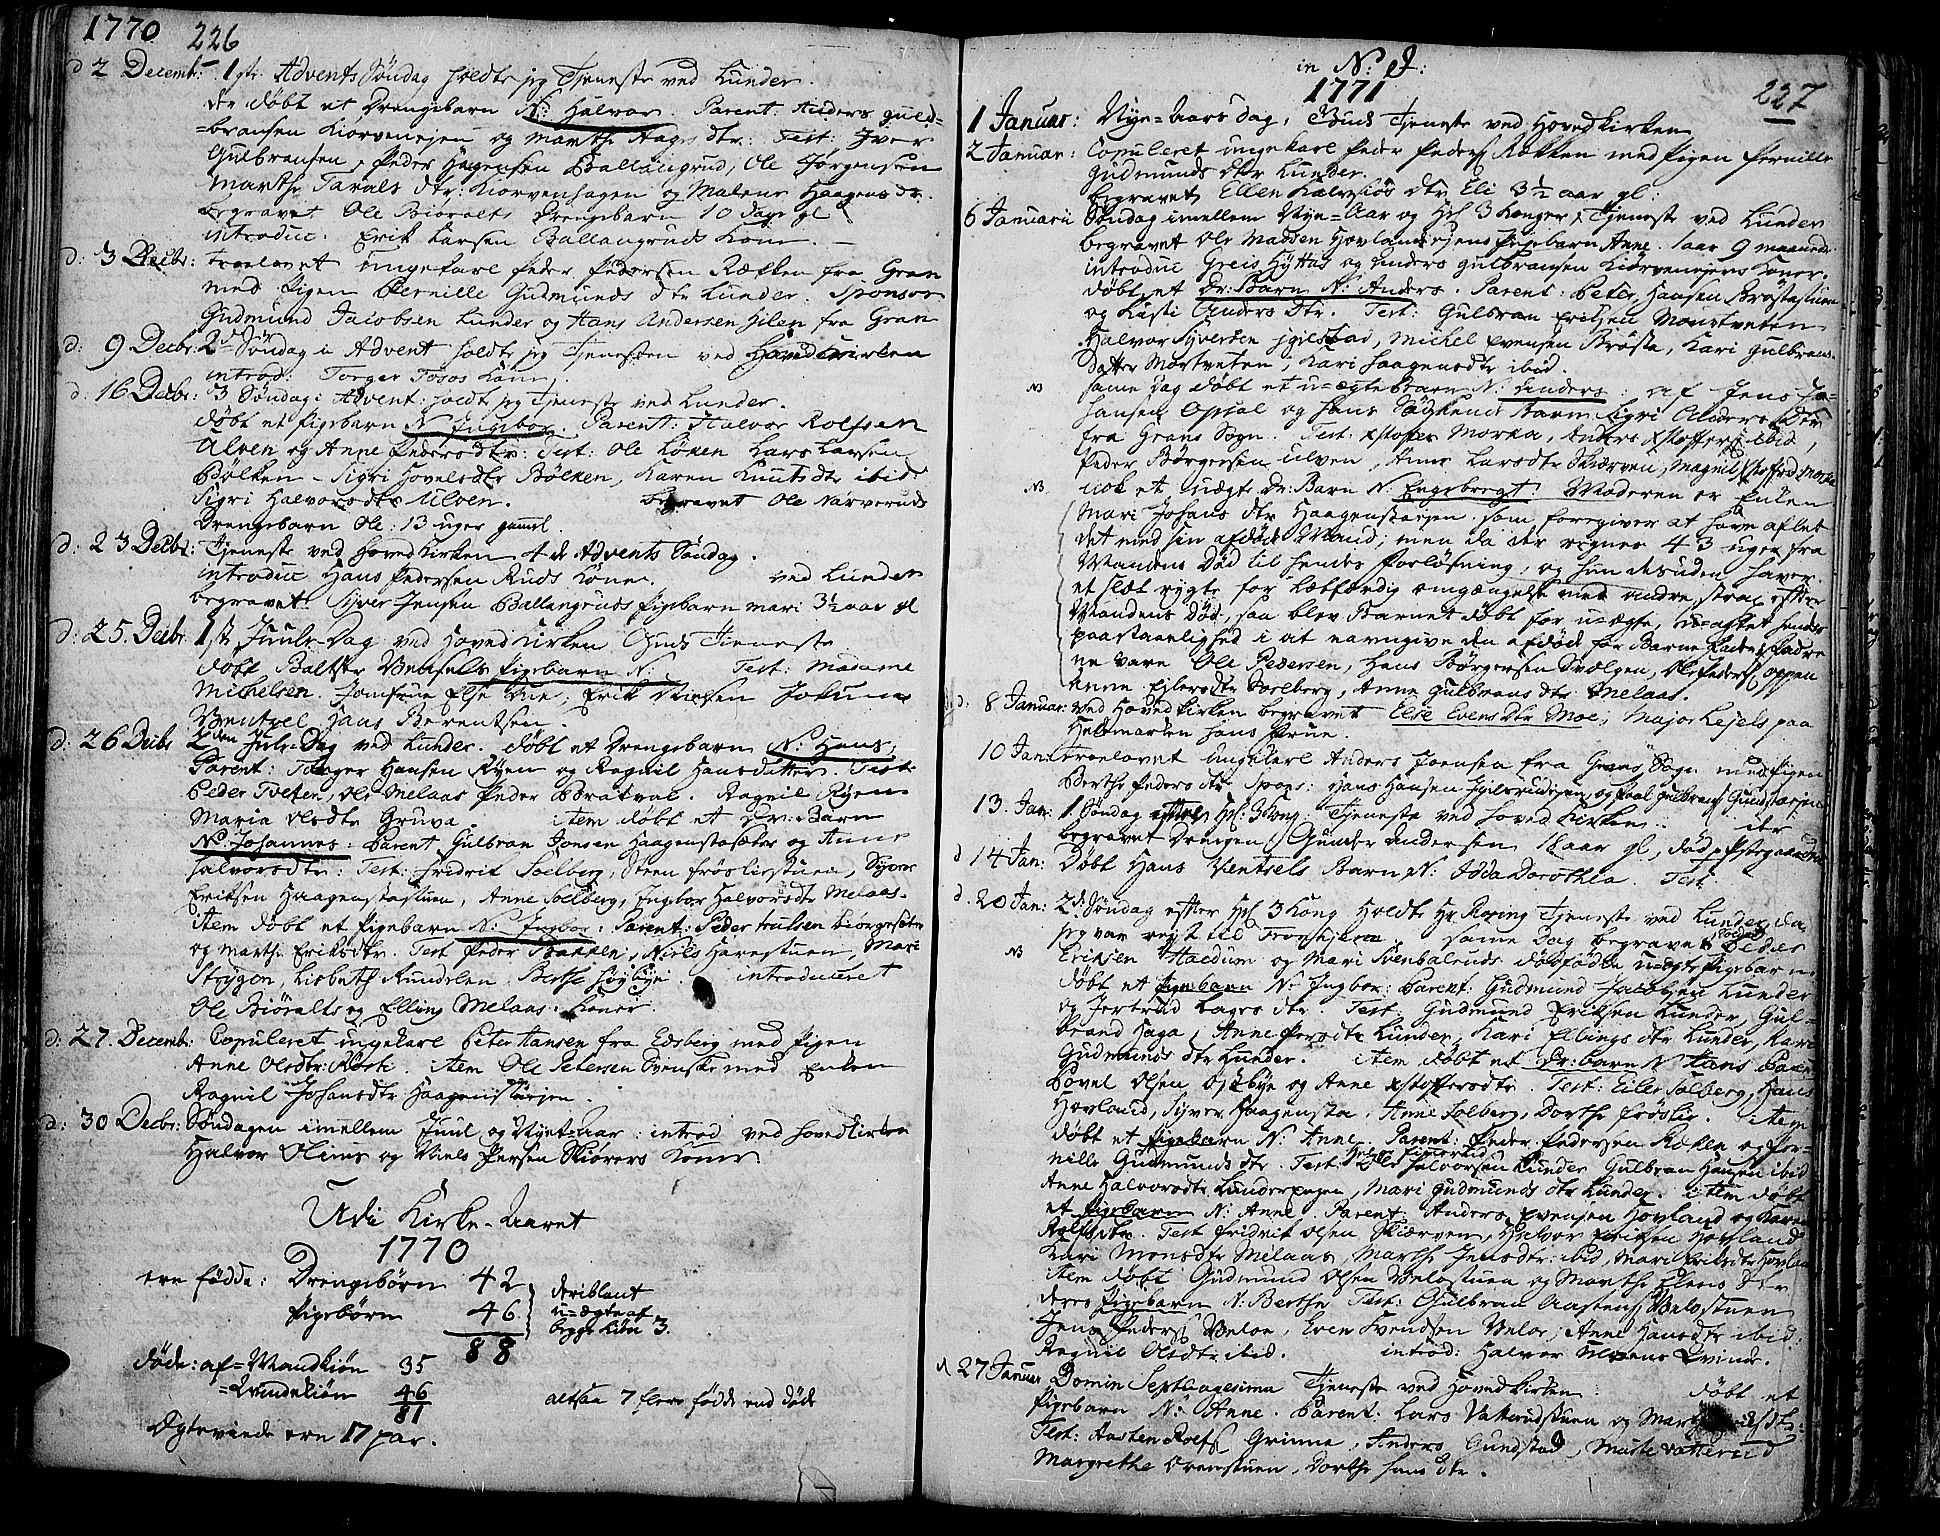 1770 226
d 2 Decemb: 1ste Advents Søndag holdte jeg Tjeneste ved Lunder.
der døbt et Drengebarn N: Halvor. Parent: Anders Guld=
=bransen Kiørvenejen og Marthe Aagesdtr: Test: Iver
Gulbransen, Peder Haagensen Ballangrud, Ole Jørgensen
Marthe Taralsdtr Kiørvenhagen og Malene Haagensdtr.
begravet Ole Biøralts Drengebarn 10 dage gl
introduc. Erik Larsen Ballangruds Kone.
d: 3 Decbr: Troelovet ungekarl Peder Pedersen Rækken fra Gran
med Pigen Pernille Gudmunds dtr Lunder. Sponsor
Gudmund Jacobsen Lunder og Hans Andersen Hilen fra Gran
d: 9 Decbr: 2den Søndag i Advent holdte jeg Tjenesten ved Hovedkirken
introd: Torger Tosos Kone.
d. 16 Decbr: 3 Søndag i Advent: holdt jeg Tjeneste ved Lunder.
døbt et Pigebarn N. Ingebor. Parent: Halvor Rolfsen
Alven og Anne Pedersdtr: Test: Ole Løken Lars Larsen
Bølken - Sigri Hovelsdtr Bølken, Karen Knutsdtr ibid:
Sigri Halvorsdtr Ulven. begravet Ole Narveruds
Drengebarn Ole: 13 uger gamel.
d: 23 Decbr: Tjeneste ved Hovedkirken 4de Advents Søndag.
introduc Hans Pedersen Ruds Kone. ved Lunder
begravet Syver Jensen Ballangruds Pigebarn Mari 3½ aar gl
d: 25. Decbr 1ste Juule-Dag ved Hovedkirken Guds Tieneste
døbt Baltzer Ventsels Pigebarn N: Test: Madame
Michelsen. Jomfrue Else; Erik Nielsen Jokum
Ventzel Hans Berentsen.
d: 26 Decbr 2den Jule-Dag ved Lunder. døbt et Drengebarn N: Hans,
Parent: Torger Hansen Ryen og Ragnil Hansdatter. Test
Peder Tveten, Ole Melaas Peder Bratval. Ragnil Ryen
Maria Olsdtr Gruva. item døbt et Dr: Barn
N. Johannes. Parent Gulbran Jonsen Haagenstasæter og Anne
Halvorsdtr: Test: Fridrik Soelberg, Steen Frøslistuen, Syver
Eriksen Haagenstastuen, Anne Soelberg, Ingebor Halvorsdtr Melaas.
Item døbt et Pigebarn N: Ingbor: Parent: Peder Trulsen Kiørgesæter
og Marthe Eriksdtr. Test Peder Bakken, Niels Harestuen, Mari
Strygen, Lisbeth Rundelen, Berthe Høybye. introduceret
Ole Biøralts og Elling Melaas: Koner.
d: 27. Decemb: Copuleret ungekarl Peter Hansen fra Edsberg med Pigen
Anne Olsdtr: Koste. item Ole Petersen Svenske med Enken
Ragnil Johansdtr Haagenstasejen.
d: 30 Decbr: Søndagen imellem Juul og Nyet=Aar: introd ved Hovedkirken
Halvor Olims og Niels Persen Skiørers Koner.
Udi Kirke-Aaret
1770
ere fødde: Drengebørn 42
Pigebørn 46
88
deriblant
u=ægte af
begge kiøn 3.
døde: af=Mandkiøn 35
=Qvindekiøn 46
81
altsaa 7 flere fødde end døde
Ægteviede ere 17 par.
in N: J:
1771
227
1 Januar: Nye=Aars dag, Guds Tjeneste ved Hovedkirken
2 Januar: Copuleret ungekarl Peder Peders: Rækken med Pigen Pernille
Gudmunds dtr Lunder.
begravet Ellen Kalvsliøs dtr Eli 3½ aar gl:
6 Januarii Søndag imellem Nye=Aar og Hel: 3 Konger, Tjeneste ved Lunder
begravet Ole Madsen Hovlandsejens Pigebarn Anne. 1 aar 9 maaneder
introduc Greis Hyttas og Anders Gulbransen Kiørvenejens Koner.
døbt et Dr: Barn N: Anders. Parent: Peter Hansen Brøstastuen
og Kisti Anders dtr. Test: Gulbran Eriksen Monstveten
Halvor Syversen Jgilstad, Michel Evensen Brøsta, Kari Gulbrans
Datter Mostveten, Kari Haagensdtr ibid.
NB same Dag døbt et u=ægte Barn N: Anders: af Jens Jo=
hansen Opsal og Hans Barn Sigri Andersdtr
fra Grans Sogn. Test: Xstoffer Morka, Anders Xstoffers: ibid,
Peder Børgersen Ulven, Anne Larsdtr Skiærven, Magnil Xstoffersd: Morka
NB nok et uægte Dr: Barn N. Engebregt. Moderen er Enken
Mari Johans dtr Haagenstaejen som foregiver at have aflet
det med sin afdøde Mand; men da der regnes 43 uger fra
Mandens Død til hendes Forløsning, og hun desuden haver
et slet rygte for letfærdig omgængelse med andre strax efter
Mandens Død, saa blev Barnet døbt for u=ægte, u=agtet hendes
paastaaelighed i at navngive den afdøde for Barnefader. Fadre
ne vare Ole Pedersen, Hans Børgersen Dvælgen, Ole Peders: Oppen
Anne Ejlersdtr Soelberg, Anne Gulbrans dtr Melaas.
d. 8 Januar: ved Hovedkirken begravet Else Evens dtr Moe, Major Lejels paa
Helsmarken hans Frue.
10 Jan: Troelovet ungkarl Anders Joensen fra Grans Sogn med Pigen
Berthe Peders dtr. Spons: Hans Hansen Jgilsrudejen og Poul Gulbrans: Gundstasejen
13. Jan: 1 Søndag efter H: 3 Kong. Tjeneste ved Hovedkirken: der
begravet Drengen Gunder Andersen 12 aar gl,
d 14 Jan: Døbt Hans Ventsels Barn N: Edda Dorothea. Test
d. 20 Jan: 2d Søndag efter Hel 3 Kong Holdte Hr Rosing Tjeneste ved Lunder, da
jeg var rejst til Tronhjem. same Dag begravet Soldat Peder
NB Eriksen Haedum og Mari Svenbalruds dødfødde u=ægte Pigebarn.
døbt et Pigebarn N: Ingbor: Parent: Gudmund Jacobsen Lunder
og Jertrud Lagesdtr. Test: Gudmund Eriksen Lunder, Gul=
brand Haga, Anne Persdtr Lunder, Kari Ellings dtr Lunder, Kari
Gudmunds dtr Lunder. item døbt et Dr: barn N Hans Paren
Povel Olsen Oppebye og Anne Xstoffersdtr. Test: Eiler Solberg, Hans
Hovland, Syver Haagensta, Anne Solberg, Dorthe Frøslie. item
døbt et Pigebarn N: Anne. Parent: Peder Pedersen Ræken og Per=
nille Gudmunds dtr. Test: Ole Halvorsen Lunder Gulbran Hansen ibid
Anne Halvorsdtr Lunderhagen, Mari Gudmunds dtr Lunder. item døbt
et Pigebarn N: Anne. Parent: Anders Evensen Hovland og Karen
Rolfsdtr. Test Fridrik Olsen Skiærven, Halvor Eriksen Hovland
Kari Monsdtr Melaas, Marthe Jensdtr: ibid, Mari Eriksdtr Hovland
item døbt Gudmund Olsen Veløstuen og Marthe Elens dtr
deres Pigebarn N: Berthe Test: Gulbran Aastens: Veløstuen
Jens Peders: Veløe, Even Svendsen Veløe, Anne Hansdtr ibid:
Ragnil Olsdtr ibid. introd: Halvor Moens Qvinde.
d 27 Januar Domin Septuagesima Tjeneste ved Hovedkirken: døbt et
Pigebarn N: Anne. Parent: Lars Vatterudstuen og Marthe
Test: Aasten Rolfs: Grinna, Anders Gundstad, Marte Vatterud
Margrethe Orenstuen, Dorthe Hansdtr.